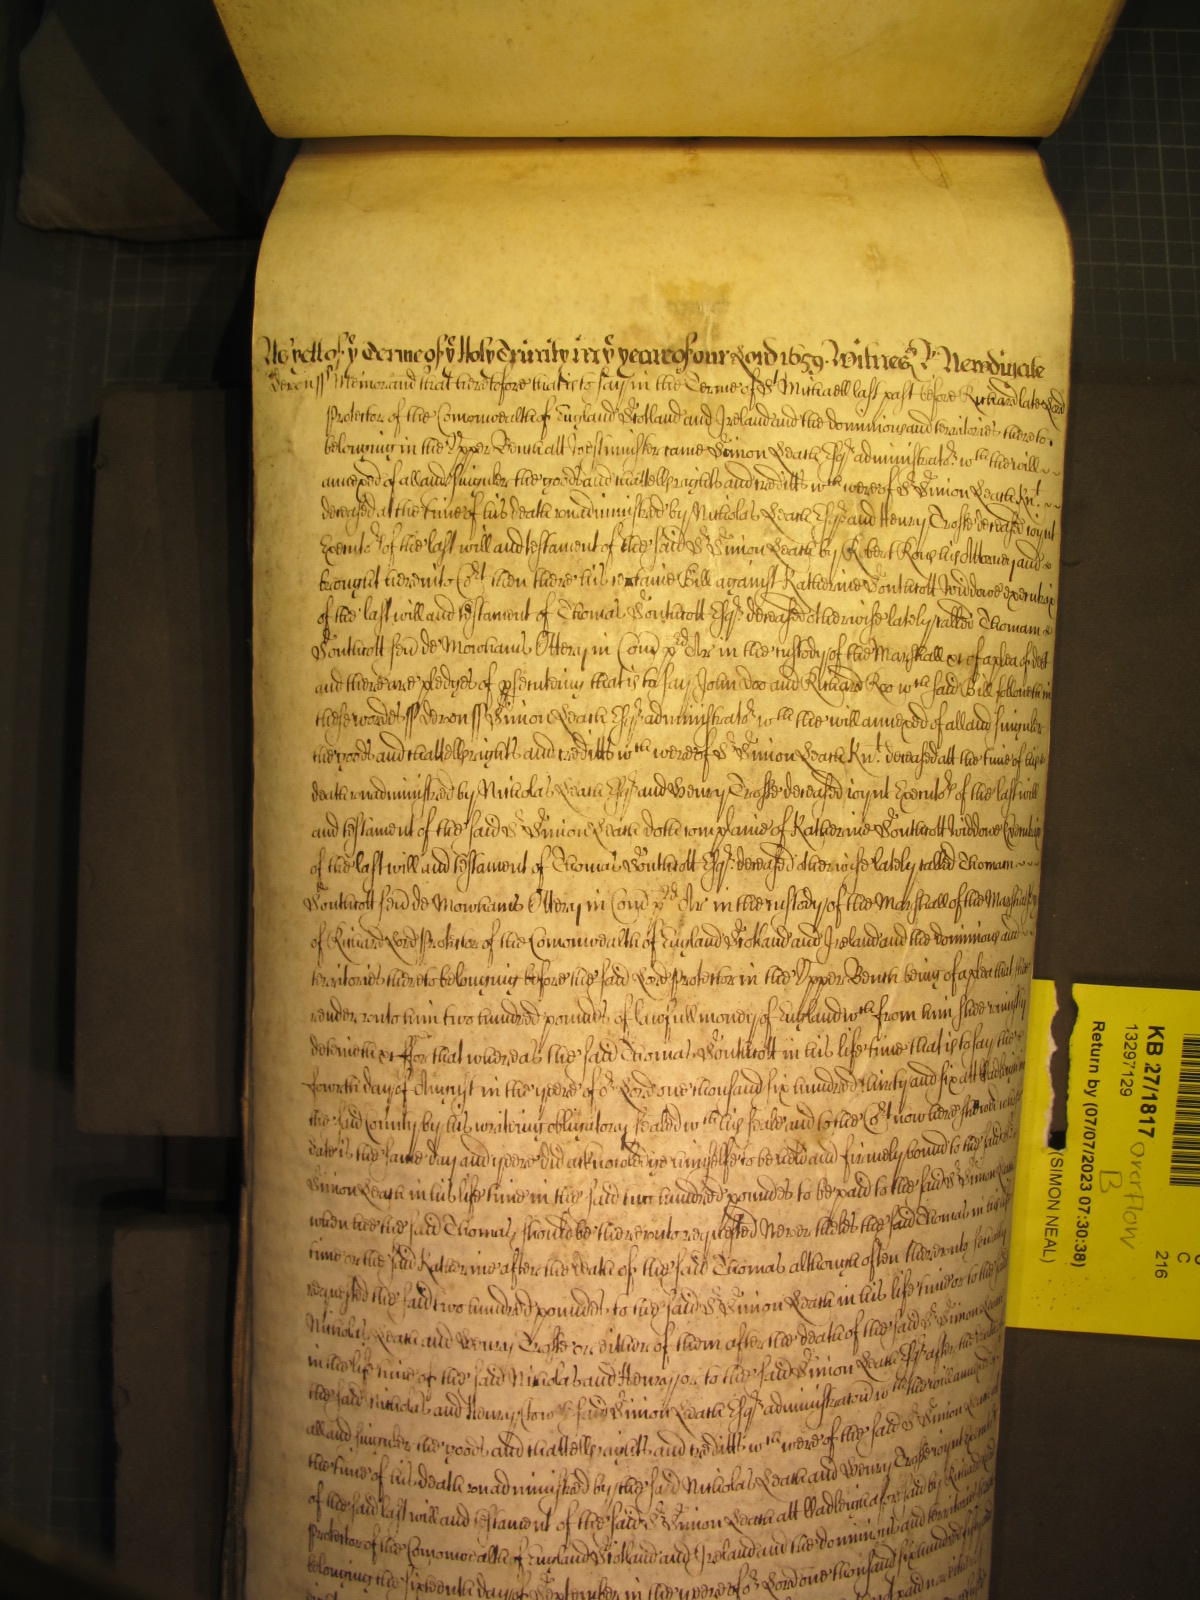 As yett of ye Terme of ye Holy Trinity in ye yeare of our Lord 1659. Witnes R: Newdigate
Devon ss Memorand that heretofore that is to say in the Terme of St Michaell last past before Richard late Lord
Protector of the Comonwealth of England Scotland and Ireland and the dominions and territories thereto
belonging in the Upper Bench att Westminster came Simon Leach Esqr administrator wth the will
annexed of all and singuler the goods and chattells rights and creditts wch were of Sr Simon Leach Knt.
deceased at the time of his death unadministred by Nicholas Leach Esqr and Henry Trosse deceased ioynt
Executors of the last will and testament of the said Sr Simon Leach by Robert Rous his Attorney and
brought here into Cort then there his certaine Bill against Katherine Southcott Widdowe executrix
of the last will and testament of Thomas Southcott Esqr deceased otherwise lately called Thomam
Southcott senr de Mowhauns Ottery in Com pred Ar in the custody of the Marshall &c of a plea of debt
and there are pledges of prosecuting that is to say John Doo and Richard Roo wch said Bill followeth in
these wordes ss Devon ss Simon Leach Esqr administrator wth the will annexed of all and singuler
the goods and chattells rights and creditts wch were of Sr Simon Leach Knt. deceased att the time of his
death unadministred by Nicholas Leach Esqr and Henry Trosse deceased ioynt Executors of the last will
and testament of the said Sr Simon Leach doth complaine of Katherine Southcott Widdowe Executrix
of the last will and testament of Thomas Southcott Esqr deceased otherwise lately called Thomam
Southcott senr de Mowhauns Ottery in Com pred Ar in the custody of the Marshall of the Marshalsey
of Richard Lord Protector of the Comonwealth of England Scotland and Ireland and the dominions and
territories thereto belonging before the said Lord Protector in the Upper Bench being of a plea that shee
render unto him two hundred pounds of lawfull money of England wch from him shee uniustly
deteineth &c For that whereas the said Thomas Southcott in his life time that is to say the
fowrth day of August in the yeere of or Lord one thousand six hundred thirty and six att Hadleigh in
the said county by his writeing obligatory sealed wth his seale and to the Cort now here shewed whose
date is the same day and yeere did acknowledge himselfe to be held and firmely bound to the said Sr
Simon Leach in his life time in the said two hundred poundes to be paid to the said Sr Simon Leach
when hee the said Thomas should be thereunto requested Neverthelesse the said Thomas in his life
time or the said Katherine after the death of the said Thomas although often thereunto
requested the said two hundred poundes to the said Sr Simon Leach in his life time or to the said
Nicholas Leach and Henry Trosse or either of them after the death of the said Sr Simon Leach
in the life time of the said Nicholas and Henry or to the said Simon Leach Esqr after the death of
the said Nicholas and Henry to wch said Simon Leach Esqr administration wth the will annexed of
all and singuler the goods and chattells rights and creditts wch were of the said Sr Simon Leach at
the time of his death unadministred by the said Nicholas Leach and Henry Trosse ioynt Executors
of the said last will and testament of the said Sr Simon Leach att Hadleigh aforesaid by Richard Lord
Protector of the Comonwealth of England Scotland and Ireland and the dominions and territories thereto
belonging the sixteenth day of September in the yeere of or Lord one thousand six hundred fifty and
KB 27/1817
13297129
Return by (07/07/2023 07:30:38)
(SIMON NEAL)
Overflow
B
C
216